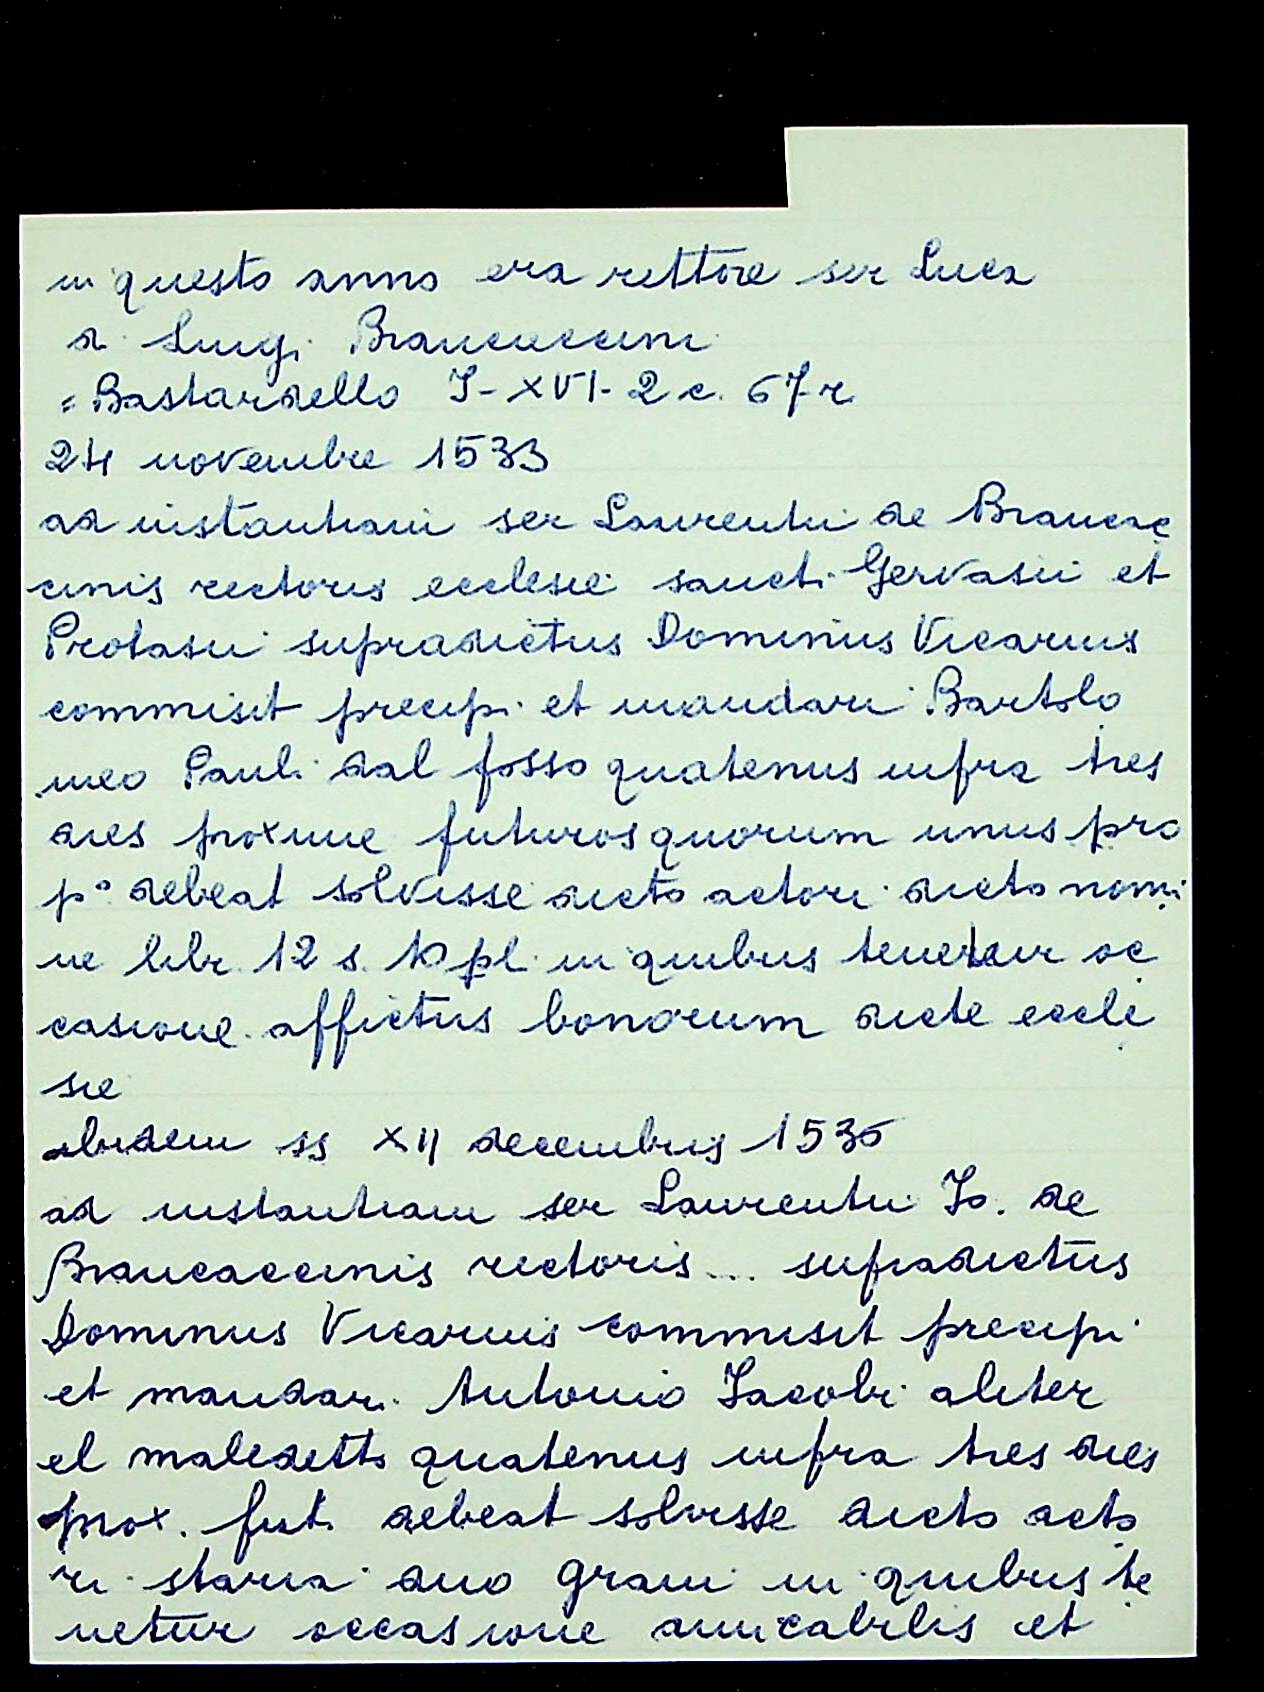 in questo anno era rettore ser Luca
di Luigi Brancaccini
= Bastardello I-XVI-2 c. 67 r
24 novembre 1533
ad instantiam ser Laurentii de Brancac
cinis rectoris ecclesie sancti Gervasii et
Protasii supradictus Dominus Vicarius
commisit precipi et mandari Bartolo
meo Pauli dal fosso quatenus infra tres
dies proxime futuros quorum unus pro
p° debeat solvisse dicto actori dicto nomi
ne libr. 12 s. 10 pl. in quibus tenetur oc
casione affictus bonorum dicte eccle
sie
ibidem ss XII decembris 1535
ad instantiam ser Laurentii Jo. de
Brancaccinis rectoris ... supradictus
Dominus Vicarius commisit precipi
et mandari Antonio Jacobi aliter
el maledetto quatenus infra tres dies
prox. fut. debeat solvisse dicto acto
ri staria duo grani in quibus te
netur occasione amicabilis et